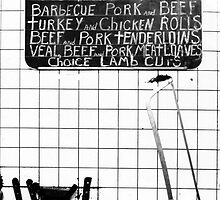 BARBECUE PORK AND BEEF
TURKEY AND CHICKEN ROLLS
BEEF AND PORK TENDERLOINS
VEAL, BEEF AND PORK MEATLOAVES
CHOICE LAMB CUTS